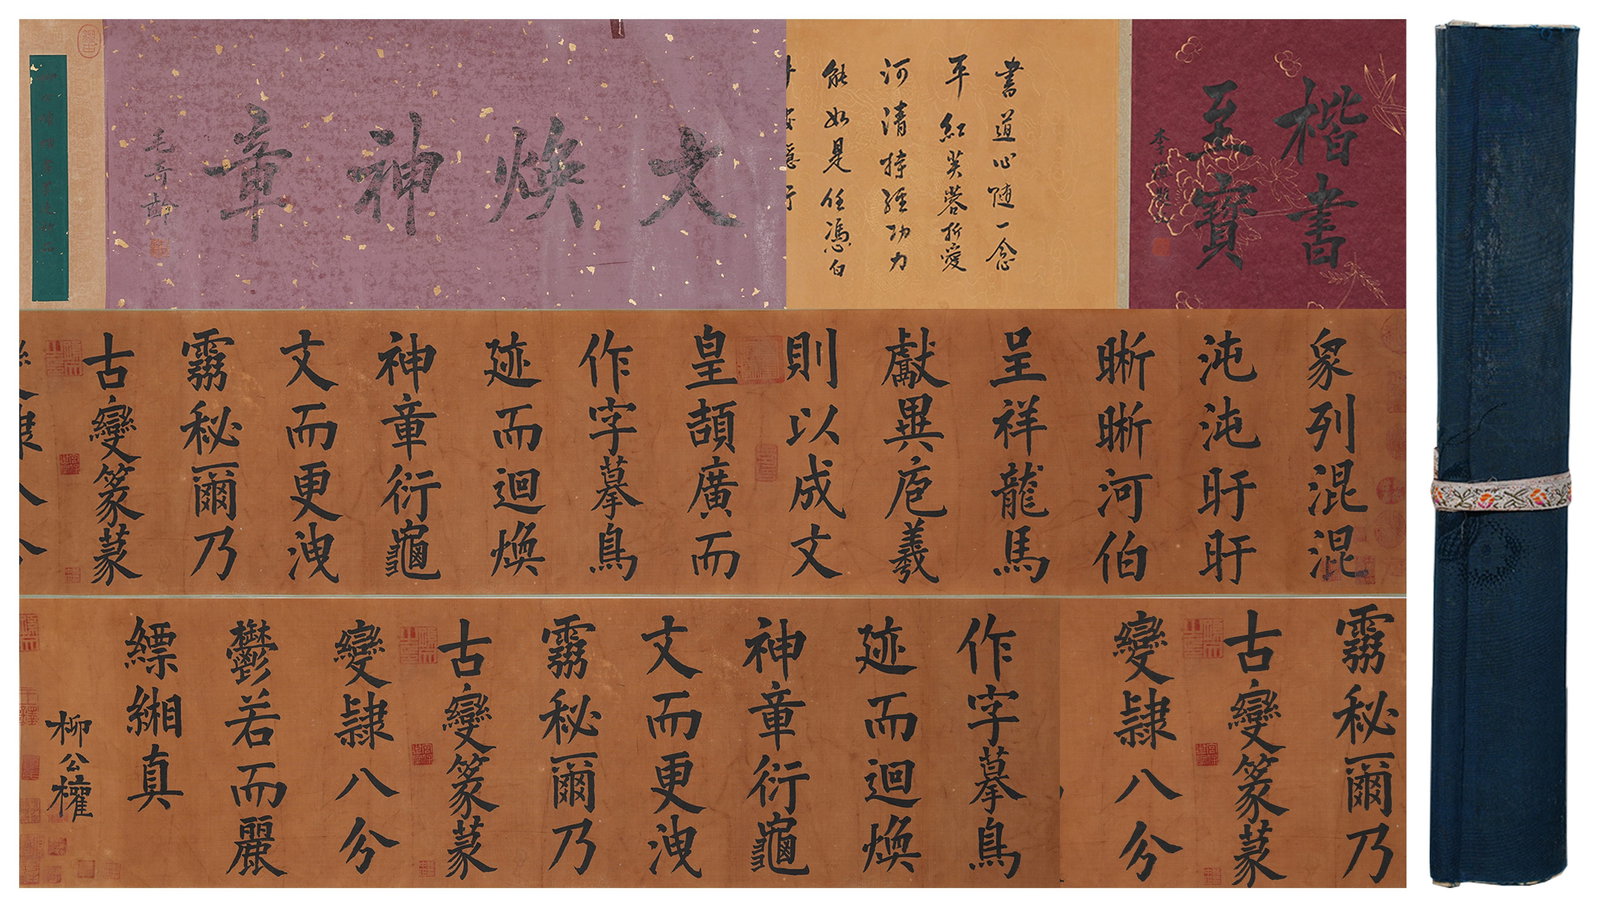 楷書
至寶
書道心随一念
平紅芙蓉折愛
河清持經功力
能如是任憑白
文煥神章
毛奇齡
象列混混
沌沌盱盱
晣晣河伯
呈祥龍馬
獻異庖羲
則以成文
皇頡廣而
作字摹鳥
跡而迴煥
神章衍龜
文而更洩
霧秘爾乃
古變篆篆
霧秘爾乃
古變篆篆
變隷八分
作字摹鳥
跡而迴煥
神章衍龜
文而更洩
霧秘爾乃
古變篆篆
變隷八分
鬱若而麗
縹緗真
柳公權